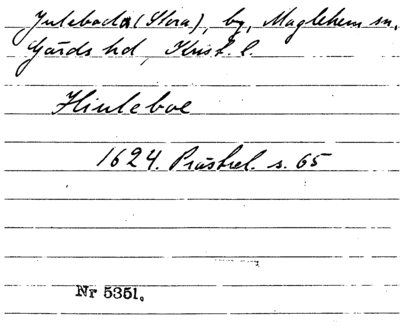 Juleboda (Stora), by, Maglehem sn,
Gärds hd, Krist. l.
Hiuleboe
1624. Prästrel. s. 65
Nr 5351.